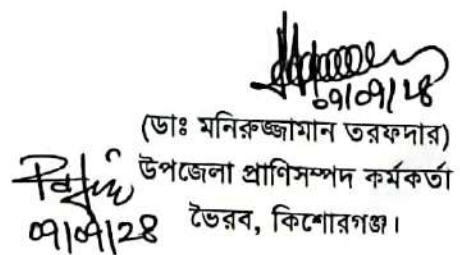 ০৭/০৭/২৪
(ডাঃ মনিরুজ্জামান তরফদার)
উপজেলা প্রাণিসম্পদ কর্মকর্তা
ভৈরব, কিশোরগঞ্জ।
০৭/০৭/২৪